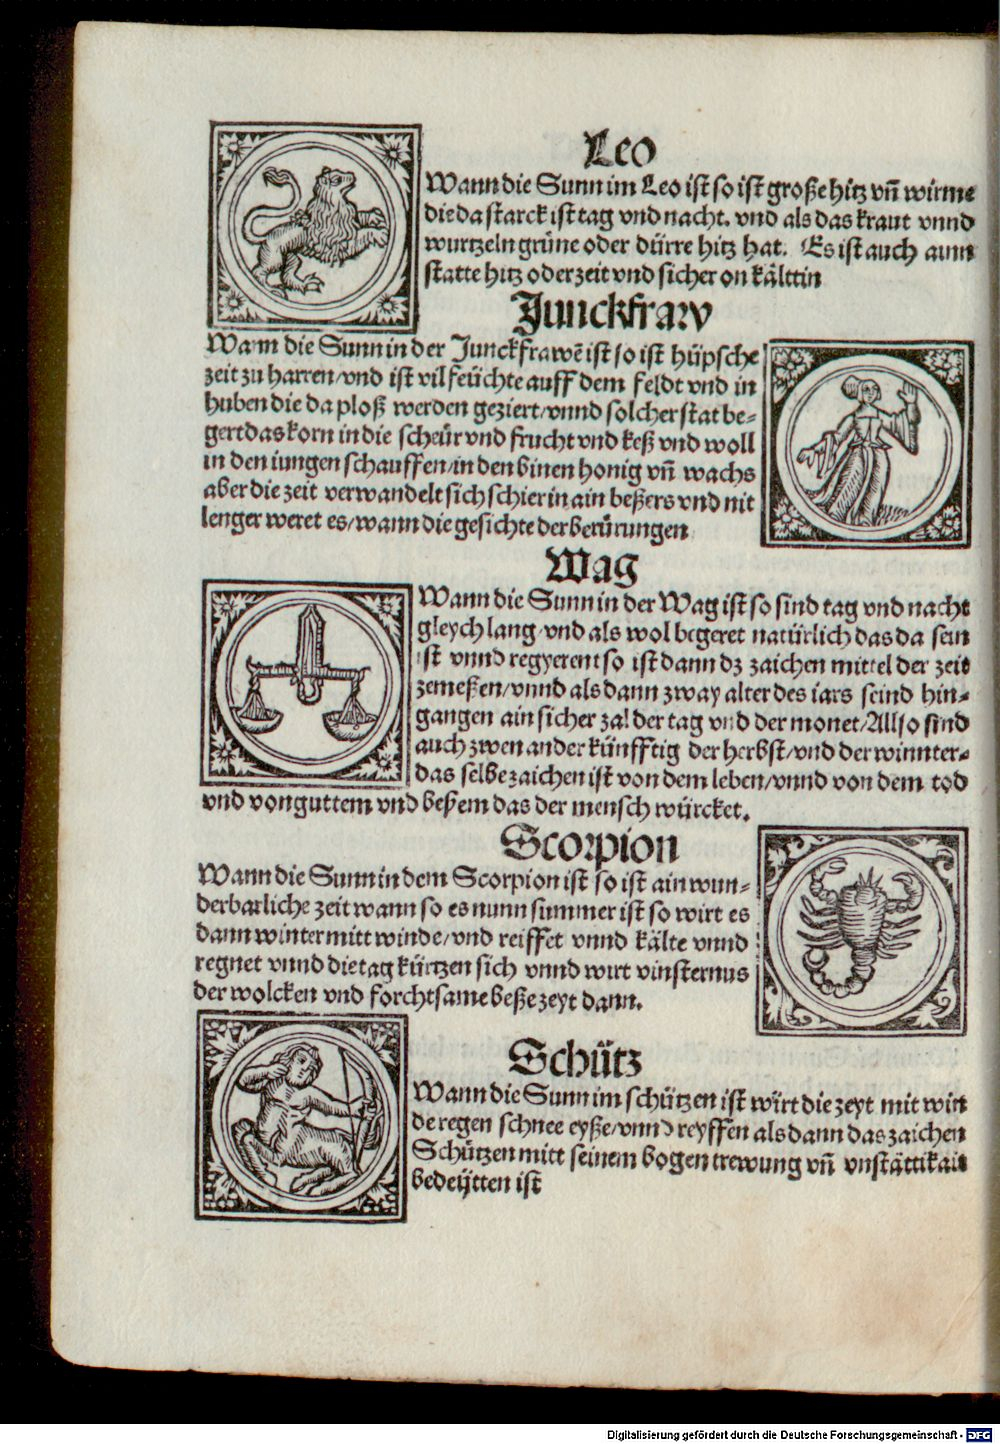 Leo
Wann die Sunn im Leo ist so ist große hitz vn̄ wirme
die da starck ist tag vnd nacht. vnd als das kraut vnnd
wurtzeln grüne oder dürre hitz hat. Es ist auch ainn
statte hitz oder zeit vnd sicher on kälttin
Junckfraw
Wann die Sunn in der Junckfrawē ist so ist hüpsche
zeit zu harren/vnd ist vil feüchte auff dem feldt vnd in
huben die da ploß werden geziert/vnnd solcher stat be-
gert das korn in die scheür vnd frucht vnd keß vnd woll
in den iungen schauffen/in den binen honig vn̄ wachs
aber die zeit verwandelt sich schier in ain beßers vnd nit
lenger weret es/wann die gesichte der berürungen
Wag
Wann die Sunn in der Wag ist so sind tag vnd nacht
gleych lang vnd als wol begeret natürlich das da sein
ist vnnd regyerent so ist dann dz zaichen mittel der zeit
zemeßen/vnnd als dann zway alter des iars seind hin-
gangen ain sicher zal der tag vnd der monet/Allso sind
auch zwen ander künfftig der herbst/vnd der winnter-
das selbe zaichen ist von dem leben/vnnd von dem tod
vnd von guttem vnd beßem das der mensch würcket.
Scorpion
Wann die Sunn in dem Scorpion ist so ist ain wun-
derbarliche zeit wann so es nunn summer ist so wirt es
dann winter mitt winde/vnd reiffet vnnd kälte vnnd
regnet vnnd die tag kürtzen sich vnnd wirt vinsternus
der wolcken vnd forchtsame beße zeyt dann.
Schütz
Wann die Sunn im schützen ist wirt die zeyt mit win
de regen schnee eyße/vnnd reyffen als dann das zaichen
Schützen mitt seinem bogen trewung vn̄ vnstättikait
bedeütten ist
Digitalisierung gefördert durch die Deutsche Forschungsgemeinschaft - DFG